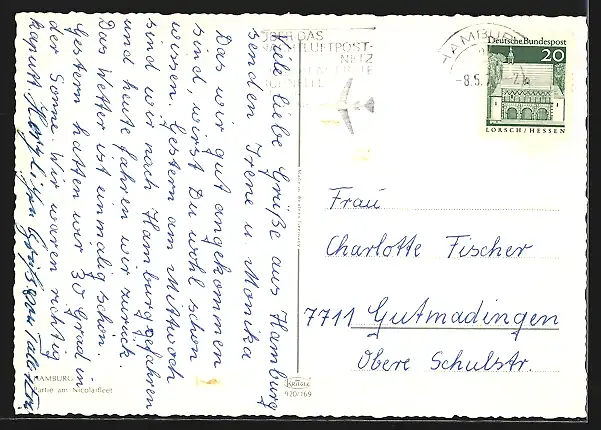 Viele liebe Grüße aus Hamburg
senden Irene u. Monika
Das wir gut angekommen
sind, wirst Du wohl schon
wissen. Gestern am Mittwoch
sind wir nach Hamburg gefahren
und heute fahren wir zurück.
Das Wetter ist einmalig schön.
Gestern hatten wir 30 Grad in
der Sonne. Wir waren richtig
kaputt.
HAMBURG
Partie am Nicolaifleet
ÜBER DAS
NACHTLUFTPOST-
NETZ
HAMBURG
-8.5.
Deutsche Bundespost
20
LORSCH/HESSEN
Frau
Charlotte Fischer
7711 Gutmadingen
Obere Schulstr.
KRÜGER
920/169